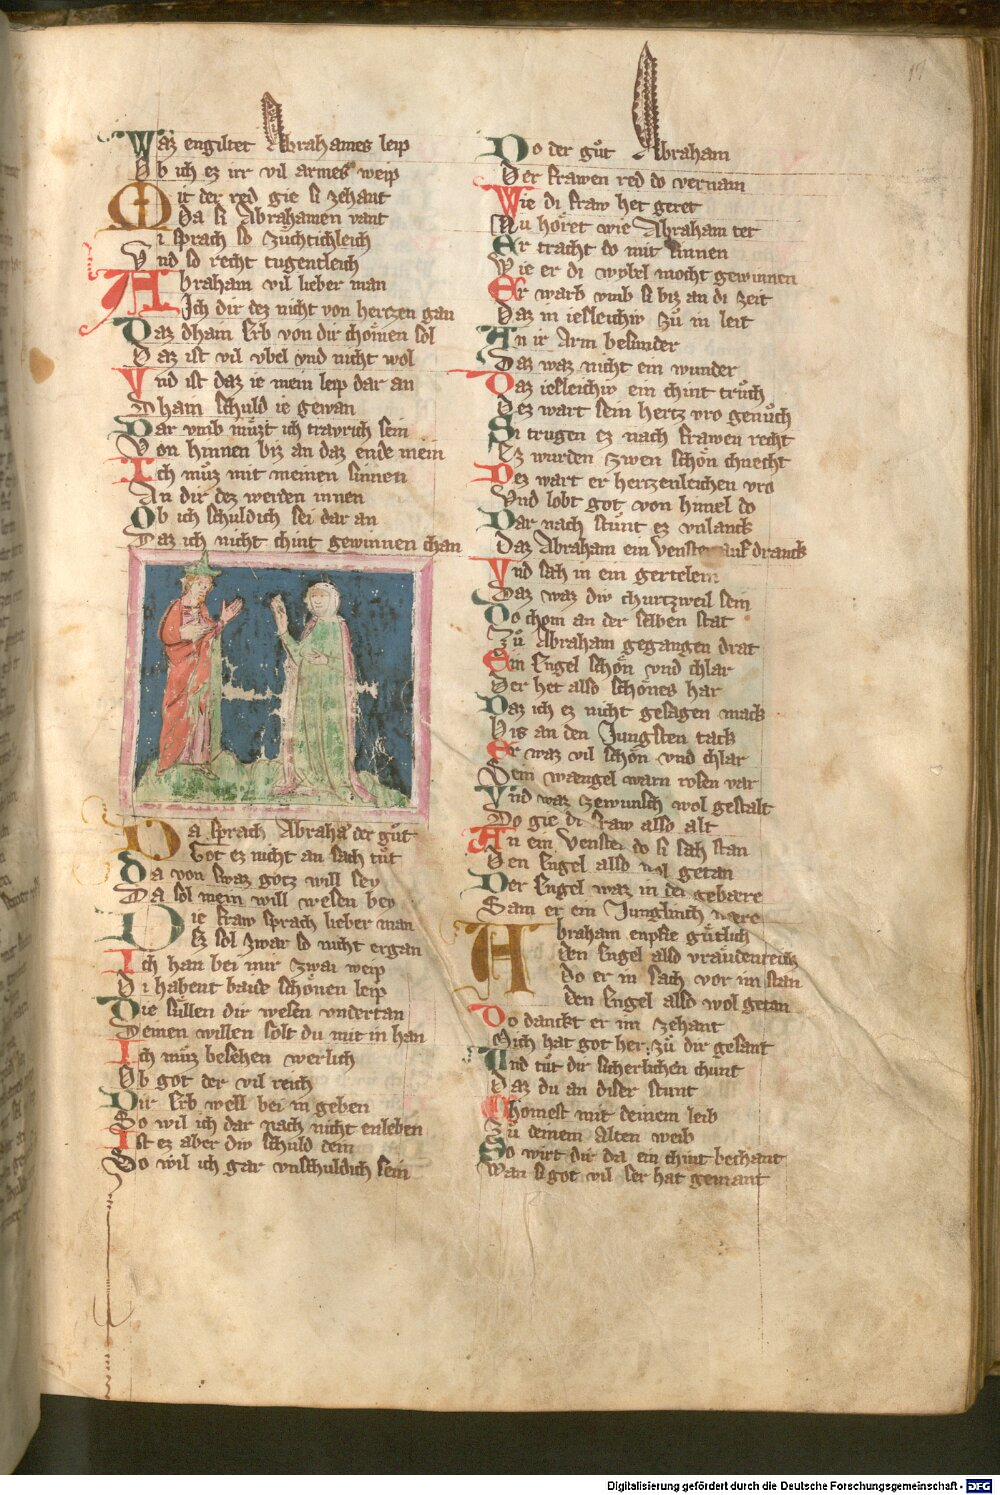 Waz engiltet Abrahames leip
Ob ich ez irr vil armes weip
Mit der red gie si zehant
Da si Abrahamen vant
Si sprach so zuͤchtichleich
Vnd so recht tugentleich
Abraham vil lieber man
Ich dir dez nicht von hertzen gan
Daz dhain Erb von dir choͤmen sol
Daz ist vil vbel vnd nicht wol
Vnd ist daz ie mein leip dar an
Dhain schuld ie gewan
Dar vmb muͤzt ich travrich sein
Von hinnen biz an daz ende mein
Ich muͦz mit meinen sinnen
An dir dez werden innen
Ob ich schuldich sei dar an
Daz ich nicht chint gewinnen chan
Da sprach Abraham der guͦt
Got ez nicht an sach tuͦt
Da von swaz gotz will sey
Da sol mein will wesen bey
Die fraw sprach lieber man
Ez sol zwar so nicht ergan
Ich han bei mir zwai weip
Di habent baide schoͤnen leip
Die suͤllen dir wesen vndertan
Deinen willen solt du mit in han
Ich muͦz besehen werlich
Ob got der vil reich
Dir Erb well bei in geben
So wil ich dar nach nicht enleben
Ist ez aber div schuld dein
So wil ich gar vnschuldich sein
Do der guͦt Abraham
Der frawen red do vernam
Wie di fraw het geret
Nu hoͤret wie Abraham tet
Er tracht do mit sinnen
Wie er di wybel mocht gewinnen
Er warb vmb si biz an di zeit
Daz in iesleichiv zuͦ im leit
An ir Arm besunder
Daz waz nicht ein wunder
Daz iesleichiv ein chint truͦch
Dez wart sein hertz vro genuͦch
Si trugen ez nach frawen recht
Ez wurden zwen schoͤn chnecht
Dez wart er hertzenleichen vro
Vnd lobt got von himel do
Dar nach stuͦnt ez vnlanck
Daz Abraham ein venster auf dranck
Vnd sah in ein gertelein
Daz waz div churtzweil sein
Do chom an der selben stat
Zuͦ Abraham gegangen drat
Ein Engel schoͤn vnd chlar
Der het also schoͤnes har
Daz ich ez nicht gesagen mack
Bis an den Jungsten tack
Er waz vil schoͤn vnd chlar
Sein waengel warn rosen var
Vnd waz zewunsch wol gestalt
Do gie di fraw also alt
An ein venster do si sah stan
Den Engel also wol getan
Der Engel waz in der gebaere
Sam er ein Junglinch were
Abraham enpfie guͤtlich
den Engel also vraͤudenreich
do er in sach vor im stan
den Engel also wol getan
Do danckt er im zehant
Mich hat got her zuͦ dir gesant
Vnd tuͦt dir sicherlichen chunt
Daz du an diser stunt
Chomest mit deinem leib
Zuͦ deinem Alten weib
So wirt dir da ein chint bechant
Wan si got vil ser hat gemant
Digitalisierung gefördert durch die Deutsche Forschungsgemeinschaft - DFG